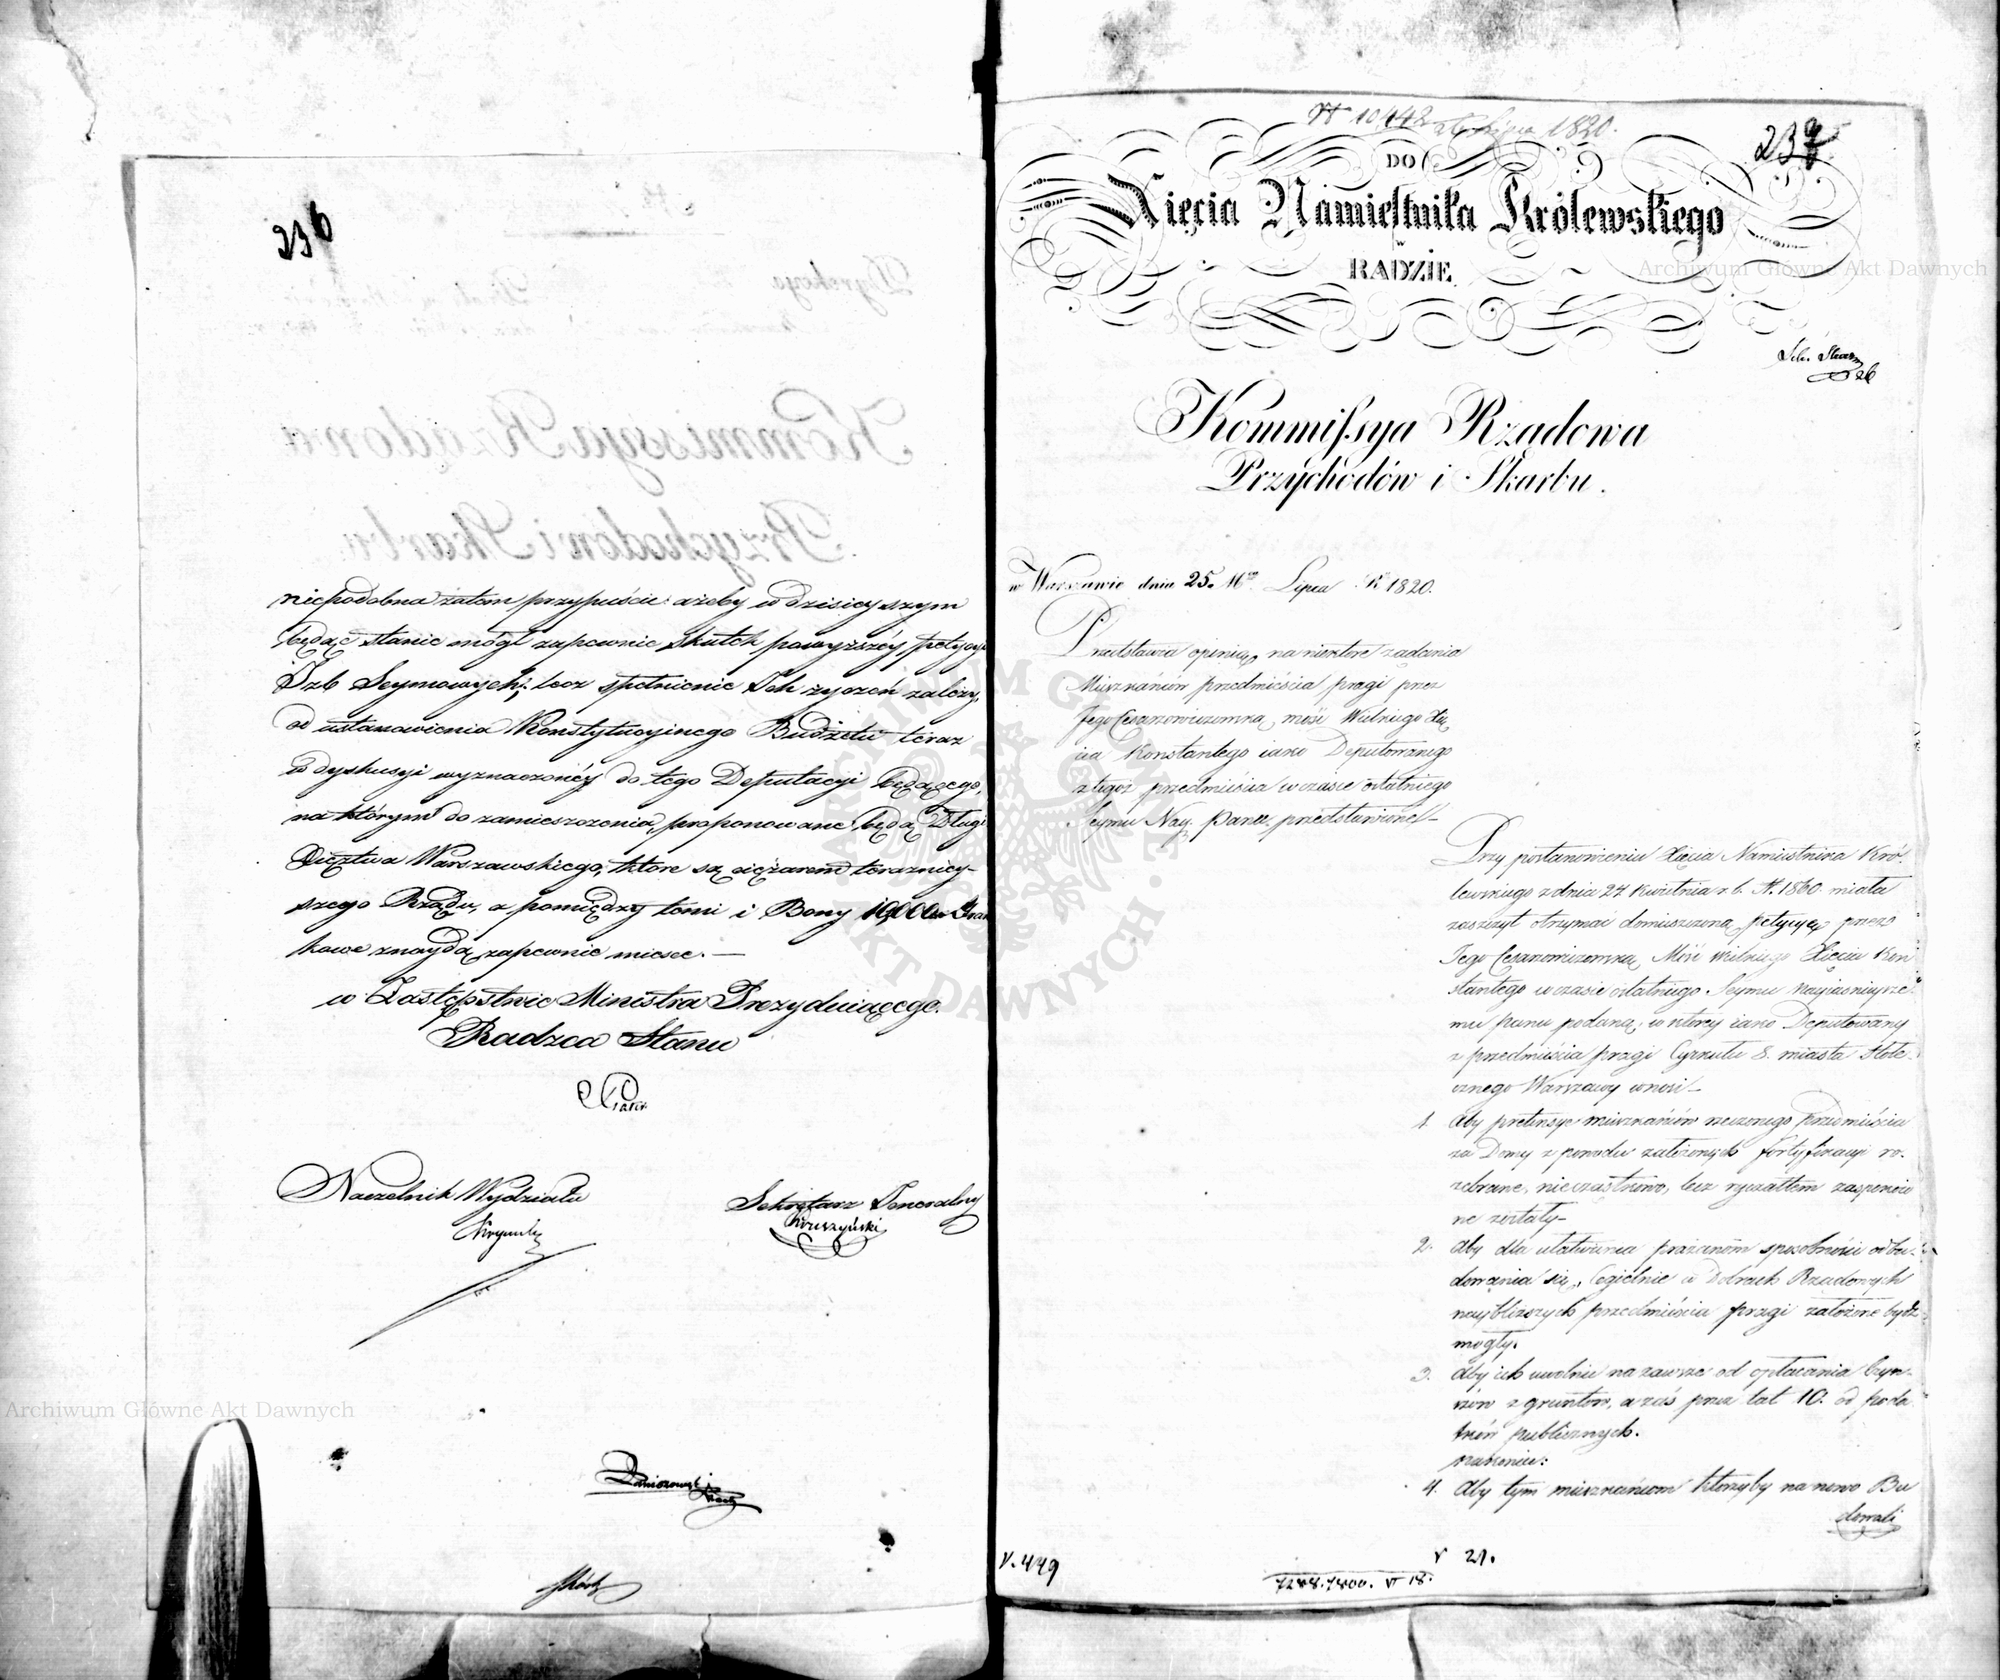 236
niepodobna zatem przypuścić ażeby w dzisieyszym
będąc stanie mógł zapewnić skutek powyższéy petycyi
Izb Seymowych; lecz spełnienie Ich życzeń zależy
od ustanowienia Konstytucyinego Budżetu teraz
w dyskusyi wyznaczonéy do tego Deputacyi będącego,
na którym do zamieszczenia, proponowane będą Długi
Xięztwa Warszawskiego, które są ciężarem teraźniey-
szego Rządu, a pomiędzy temi i Bony 10,000 Fran
kowe znaydą zapewnie miesce. —
w Zastępstwie Ministra Prezyduiącego.
Radzca Stanu
Naczelnik Wydziału
Sekretarz Generalny
Kruszyński
Nº 10448 26 Lipca 1820.
237
DO
Xięcia Namiestnika Królewskiego
w
RADZIE.
26
Kommissya Rządowa
Przychodów i Skarbu.
w Warszawie dnia 25. Mca Lipca Rº 1820.
Przedstawia opinią na niektóre żądania
Mieszkańców przedmieścia pragi przez
Jego Cesarzowiczowską mość Wielkiego Xię
cia Konstantego iako Deputowanego
z tegoż przedmieścia w czasie ostatniego
Seymu Nay: Panu przedstawione –
Przy postanowieniu Xięcia Namiestnika Kró-
lewskiego z dnia 27 Kwietnia r. b. Nº 1860. miała
zaszczyt otrzymać domieszczoną petycyę przez
Jego Cesarzowiczowską Mość Wielkiego Xięcia Kon
stantego w czasie ostatniego Seymu nayiaśnieysze-
mu panu podaną, w którey iako Deputowany
z przedmieścia pragi Cyrkułu 8. miasta Stołe-
cznego Warszawy wnosi –
1. Aby pretensye mieszkańców rzeczonego przedmieścia
za Domy z powodu założonych fortyfikacyi ro-
zebrane, nie cząstkowo, lecz ryczałtem zaspokoio
ne zostały –
2. Aby dla ułatwienia prażanom sposobności odbu-
dowania się, Cegielnie w Dobrach Rządowych
naybliższych przedmieścia pragi założone bydź
mogły.
3. Aby ich uwolnić na zawsze od opłacania Czyn-
szów z gruntów, a zaś przez lat 10. od poda
tków publicznych.
nakoniec:
4. Aby tym mieszkańcom którzyby na nowo Bu
dowali
V. 449
v 21.
7248.7400. VI 18.
Archiwum Główne Akt Dawnych
Archiwum Główne Akt Dawnych
ARCHIWUM GŁÓWNE AKT DAWNYCH